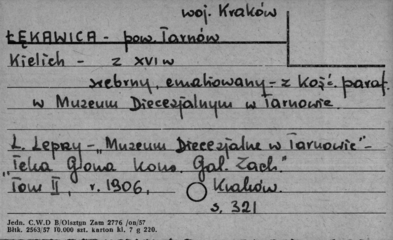 woj. Kraków
ŁĘKAWICA - pow. Tarnów
Kielich - z XVI w
srebrny, emaliowany - z kość. paraf.
w Muzeum Diecezjalnym w Tarnowie.
Ł. Lepszy - "Muzeum Diecezjalne w Tarnowie" -
"Teka Gona Kons. Gal. Zach."
Tom II, r. 1906, Kraków.
s. 321
Jedn. C.W.D B/Olsztyn Zam 2776 /on/57
Bhk. 2563/57 10.000 szt. karton kl. 7 g 220.